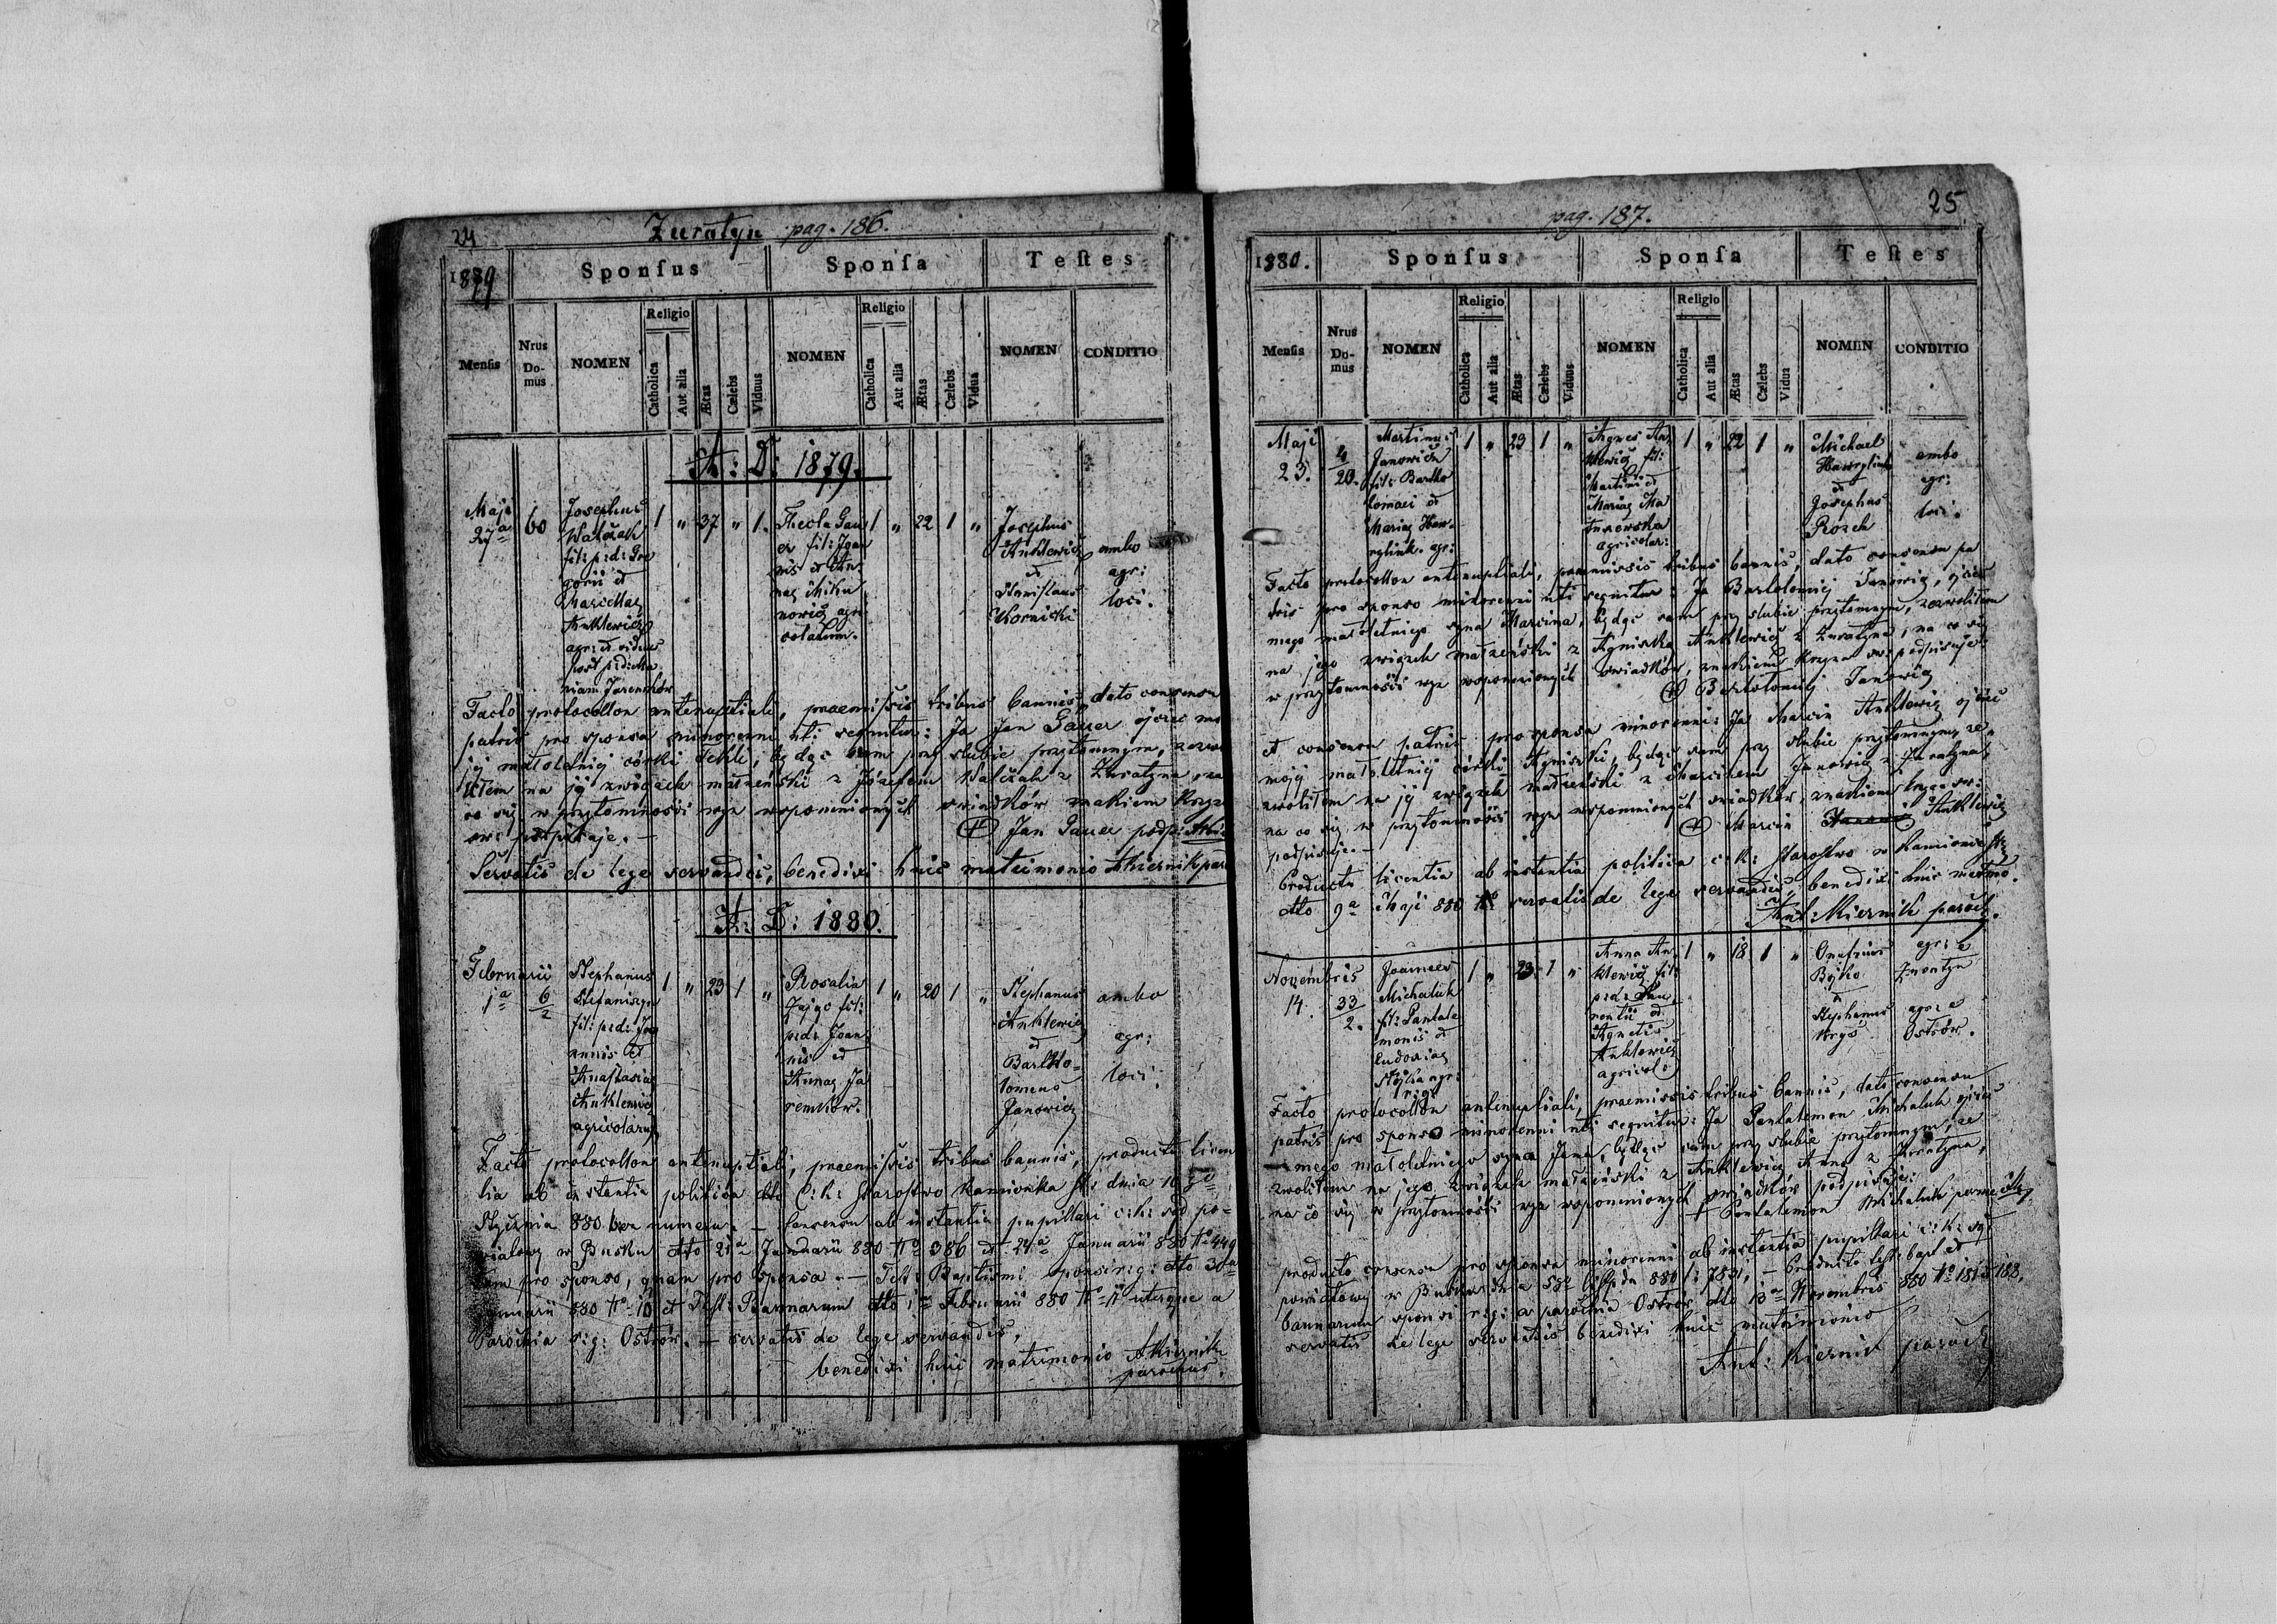 24
Zuratyn pag. 186.
1879
Sponſus
Sponſa
Teſtes
Menſis
Nrus Do-mus
NOMEN
Religio
Catholica
Aut alia
Ætas
Cælebs
Viduus
NOMEN
Religio
Catholica
Aut alia
Ætas
Cælebs
Vidua
NOMEN
CONDITIO
A: D: 1879.
Maji
27a
60
Josephus
Walczak
fil: p:d: Gre
gorii et
Marcellae
Anklewicz
agr: et viduus
post p:d: Ma
riam Jaremkow
1 " 37 " 1.
Thecla Gau
er fil: Joan
nis et An
nae Miku
nowicz agri
colarum.
1 " 22 1 "
Josephus
Anklewicz
et
Stanislaus
Kornicki
ambo
agr:
loci.
Facto protocollon antenuptiali, praemissis tribus bannis, dato consensu
patris pro sponsa minorenni uti sequitur: Ja Jan Gauer ojciec mo
jej małoletniej córki Tekli, będąc sam przy ślubie przytomnym, zezwo
liłem na jej związek małżeński z Józefem Walczak z Zuratyna, na
co się w przytomności wyż wspomnionych świadków znakiem krzyża
św: podpisuję. —
(+) Jan Gauer podp:
Servatis de lege servandis, benedixi huic matrimonio AKiernik par
A: D: 1880.
Februarii
1a
6/2
Stephanus
Stefaniszyn
fil: p:d: Joa
nnis et
Anastasiae
Anklewicz
agricolarum
1 " 23 1 "
Rosalia
Zajgo fil:
p:d: Joan
nis et
Annae Ja
remków.
1 " 20 1 "
Stephanus
Anklewicz
et
Bartho-
lomeus
Janowicz
ambo
agr:
loci.
Facto protocollon antenuptiali, praemissis tribus bannis, producta licen
tia ab instantia politica dto C: k: Starostwo Kamionka str dnia 16go
Stycznia 880 bez numeru. — Consensu ab instantia pupillari c: k: sąd po-
wiatowy w Busku dto 21a Januarii 880 No 386 et 24a Januarii 880 No 449
tam pro sponso, quam pro sponsa. — Test: Baptismi sponsi r: g: dto 30a
Januarii 880 No 10 et Test: Bannorum dto 1a Februarii 880 No 11 uterque a
Parochia r: g: Ostrów. — servatis de lege servandis,
benedixi huic matrimonio AKiernik
parochus.
pag. 187.
25
1880.
Sponſus
Sponſa
Teſtes
Menſis
Nrus Do-mus
NOMEN
Religio
Catholica
Aut alia
Ætas
Cælebs
Viduus
NOMEN
Religio
Catholica
Aut alia
Ætas
Cælebs
Vidua
NOMEN
CONDITIO
Maji
23.
Martinus
Janowicz
fil: Bartho
lomaei et
Mariae Haw-
rylink. agr:
1 " 23 1 "
Agnes An
klewicz fil:
Martini et
Mariae Ma
agricolar:
1 " 22 1 "
Michael
Hawrylink
et
Josephus
Rozek
ambo
agr:
loci.
Facto protocollon antenuptiali, praemissis tribus bannis, dato consensu pa
tris pro sponso minorenni uti sequitur: Ja Bartłomiej Janowicz, ojciec
mego małoletniego syna Marcina, będąc sam przy ślubie przytomnym, zezwoliłem
na jego związek małżeński z Agnieszką Anklewicz z Zuratyna, na co się
w przytomności wyż wspomnionych świadków, znakiem krzyża św: podpisuję.
(+) Bartłomiej Janowicz
et consensu patris pro sponsa minorenni: Ja Marcin Anklewicz ojciec
mojej małoletniej córki Agnieszki, będąc sam przy ślubie przytomnym, ze
zwoliłem na jej związek małżeński z Marcinem Janowicz z Zuratyna,
na co się w przytomności wyż wspomnionych świadków, znakiem krzyża św:
podpisuję. —
(+) Marcin Anklewicz
Producta licentia ab instantia politica c: k: Starostwo w Kamionce Str
dto 9a Maji 880 servatis de lege servandis, benedixi huic matmo.
Ant: Kiernik paroch.
Novembris
14.
33/2.
Joannes
Michaluk
fil: Pantale
monis et
Eudoxiae
Stojka agr:
r: g:
1 " 23. 1 "
Anna An
klewicz fil:
p:d: Lau
rentii et
Agnetis
Anklewicz
agricol:
1 " 18 1 "
Onufrius
Bojko
et
Stephanus
agr: e
Zuratyn
agr: e
Ostrów.
Facto protocollon antenuptiali, praemissis tribus bannis, dato consensu
patris pro sponso minorenni uti sequitur: Ja Pantalemon Michaluk ojciec
mego małoletniego syna Jana, będąc sam przy ślubie przytomnym, ze
zwoliłem na jego związek małżeński z Anklewicz Anną z Zuratyna,
na co się w przytomności wyż wspomnionych świadków podpisuję:
+ Pantalemon Michaluk
producto consensu pro sponsa minorenni ab instantia pupillari c: k: sąd
powiatowy w Busku dnia 880 l: 7831, — producto test: bapt et
bannorum sponsi r: g: a parochia Ostrów dto 13a Novembris 880 No 181 et 188,
servatis de lege servandis benedixi huic matrimonio
Ant: Kiernik paroch